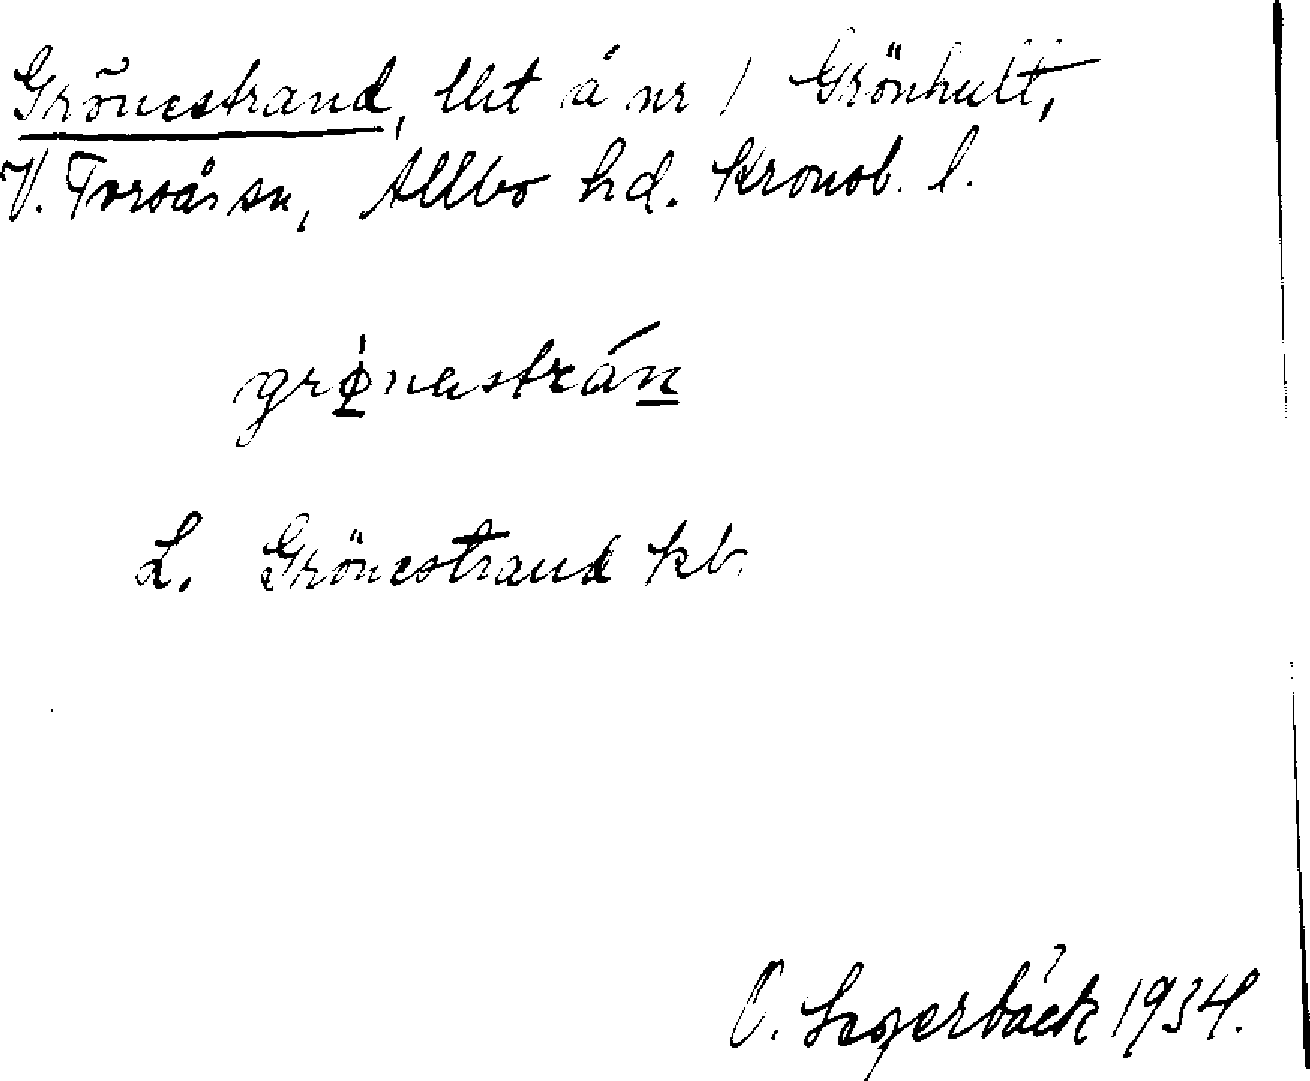 Grönestrand, lht å nr 1 Grönhult,
V. Torsås sn, Allbo hd. Kronob. l.
grø̀nastrán
L. Grönestrand kb.
O. Segerbäck 1934.